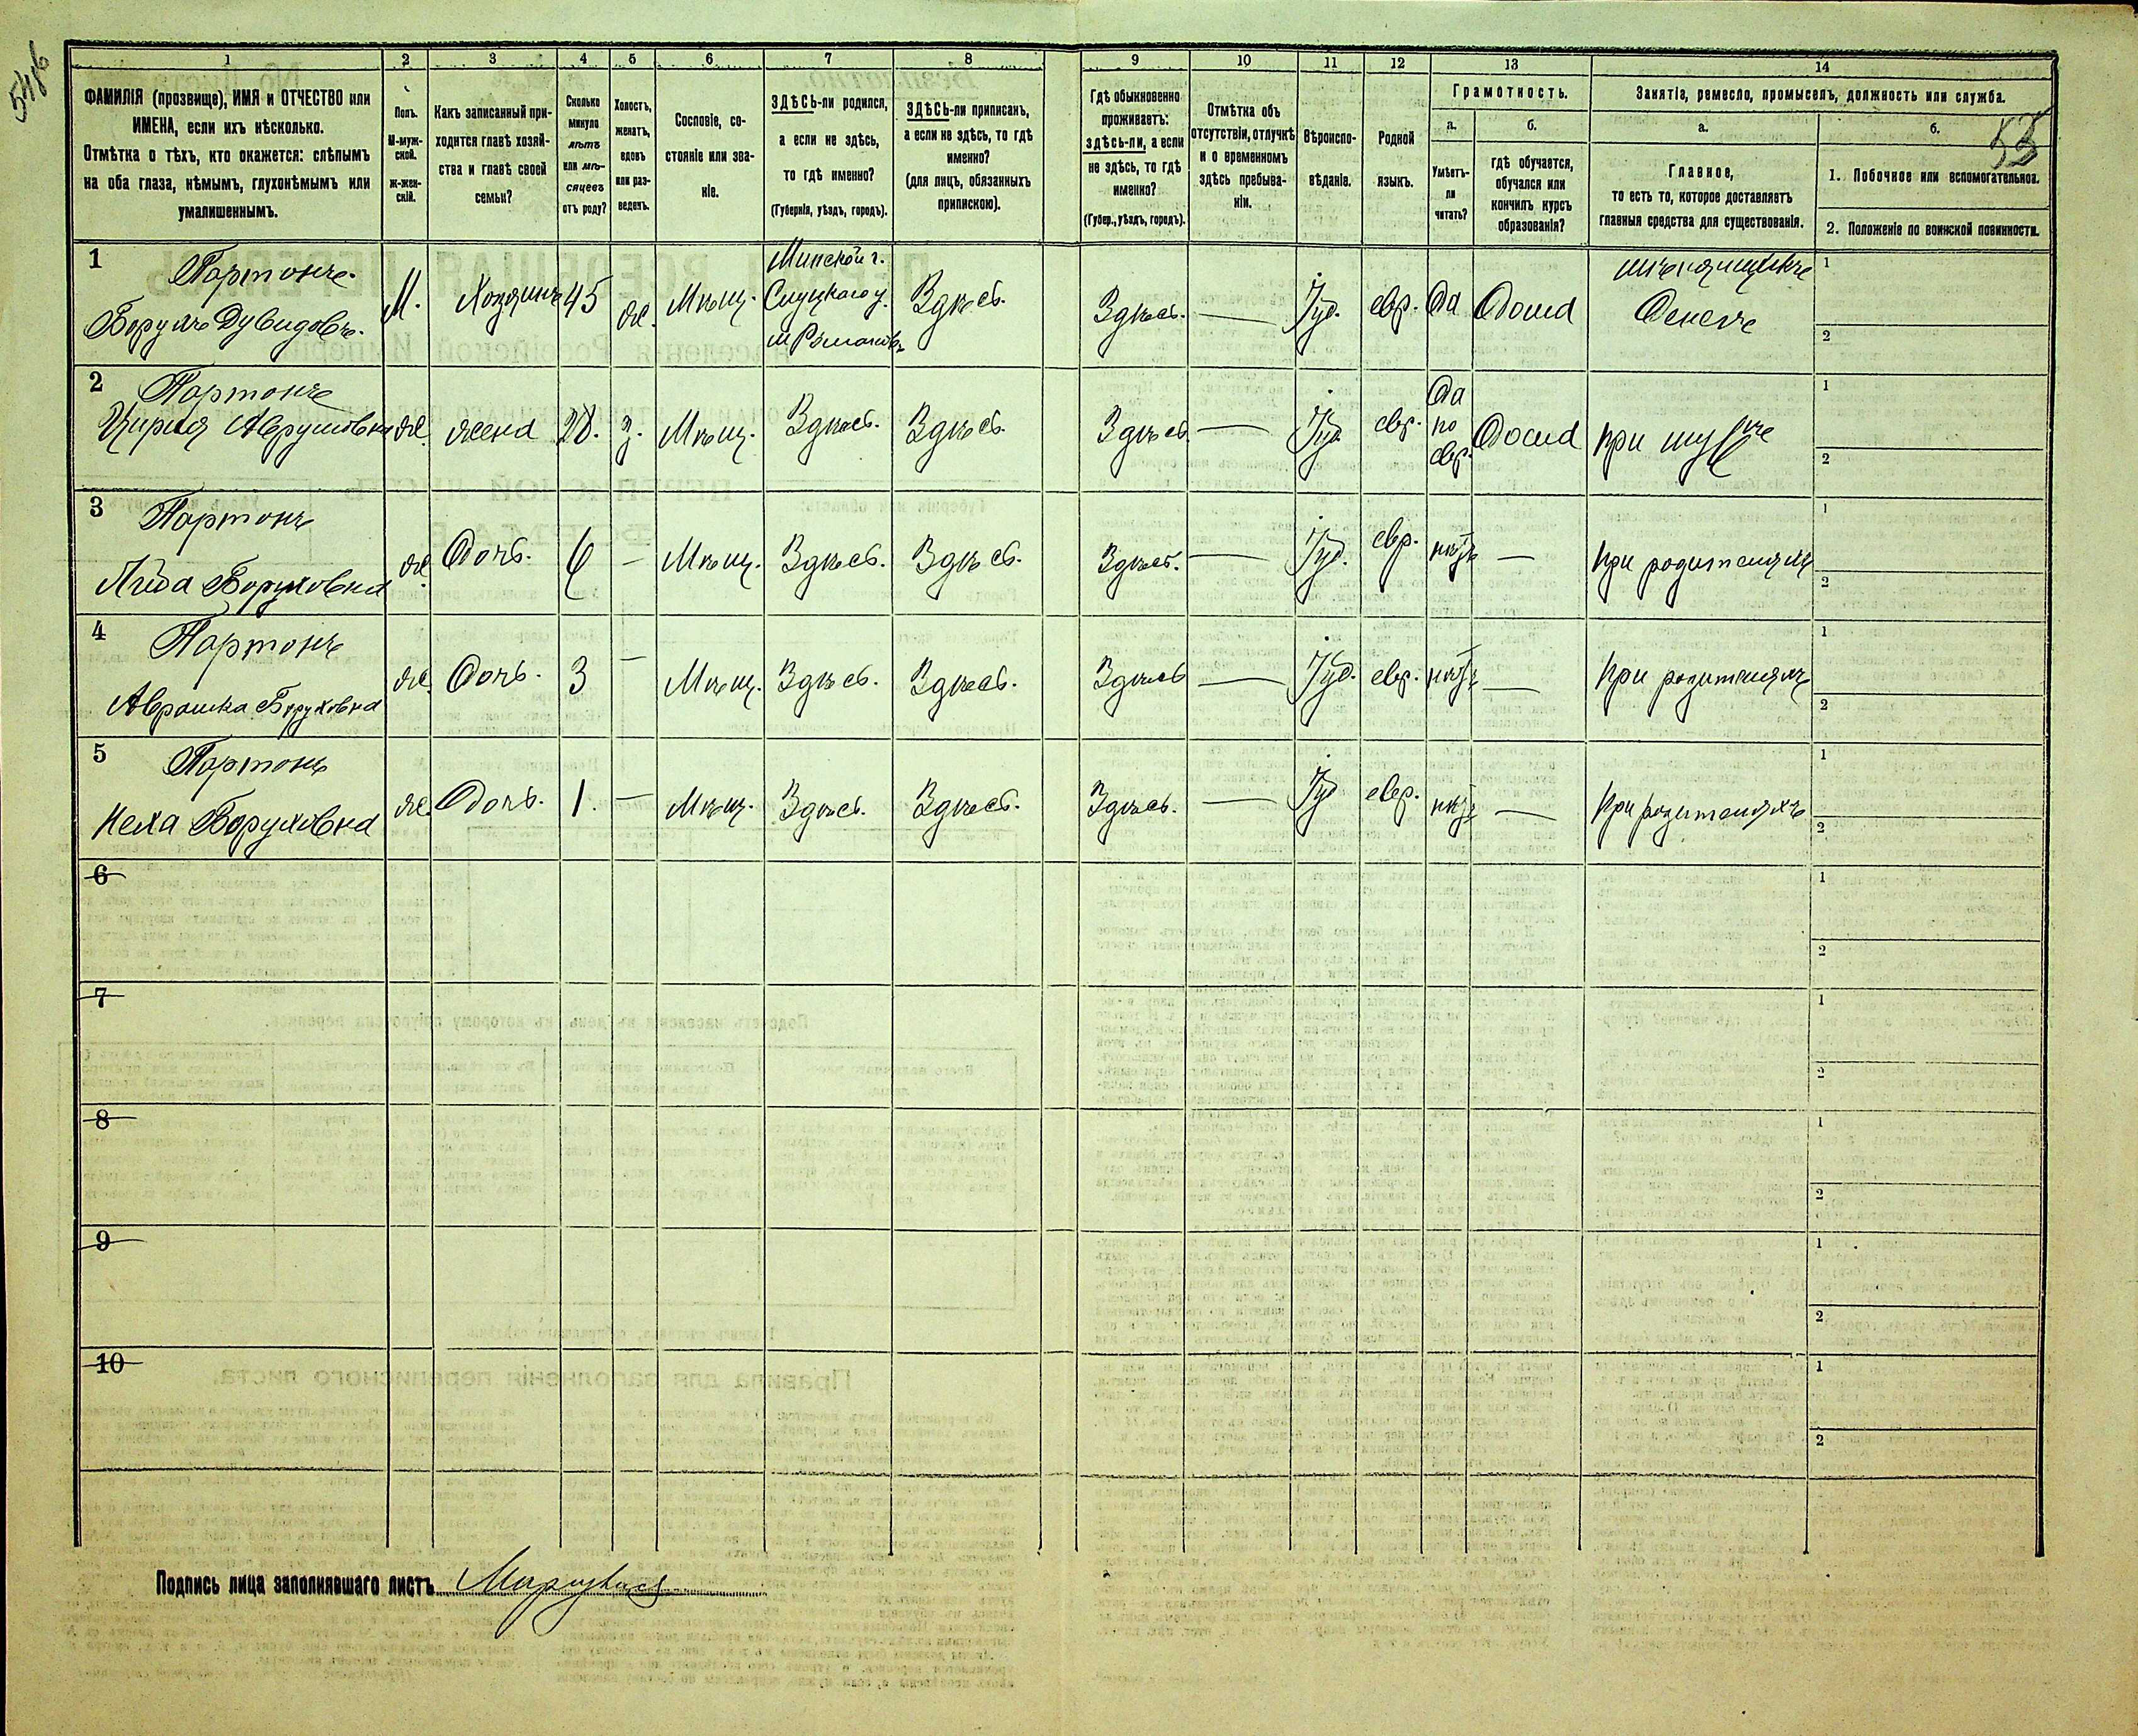 5416
53
1 2 3 4 5 6 7 8 9 10 11 12 13 14
ФАМИЛІЯ (прозвище), ИМЯ и ОТЧЕСТВО или
ИМЕНА, если ихъ нѣсколько.
Отмѣтка о тѣхъ, кто окажется: слѣпымъ
на оба глаза, нѣмымъ, глухонѣмымъ или
умалишеннымъ.
Полъ.
М-муж-
ской.
Ж-жен-
скій.
Какъ записанный при-
ходится главѣ хозяй-
ства и главѣ своей
семьи?
Сколько
минуло
лѣтъ
или мѣ-
сяцевъ
отъ роду?
Холостъ,
женатъ,
вдовъ
или раз-
веденъ.
Сословіе, со-
стояніе или зва-
ніе.
ЗДѢСЬ-ли родился,
а если не здѣсь,
то гдѣ именно?
(Губернія, уѣздъ, городъ).
ЗДѢСЬ-ли приписанъ,
а если не здѣсь, то гдѣ
именно?
(для лицъ, обязанныхъ
припискою).
Гдѣ обыкновенно
проживаетъ:
здѣсь-ли, а если
не здѣсь, то гдѣ
именно?
(Губер., уѣздъ, городъ).
Отмѣтка объ
отсутствіи, отлучкѣ
и о временномъ
здѣсь пребыва-
ніи.
Вѣроиспо-
вѣданіе.
Родной
языкъ.
Грамотность.
а.
Умѣетъ-
ли
читать?
б.
гдѣ обучается,
обучался или
кончилъ курсъ
образованія?
Занятіе, ремесло, промыселъ, должность или служба.
а.
Главное,
то есть то, которое доставляетъ
главныя средства для существованія.
б.
1. Побочное или вспомогательное.
2. Положеніе по воинской повинности.
1
Партонъ
Борухъ Дувидовъ.
М. Хозяинъ 45 ж. Мѣщ.
Минской г.
Слуцкаго у.
м Романовъ
Здѣсь. Здѣсь. — Іуд. евр. Да Дома
Осепъ
1
2
2
Партонъ
Цирля Аврумовна ж. жена 28. з. Мѣщ. Здѣсь. Здѣсь. Здѣсь — Іуд. евр.
Да
по
евр.
Дома при мужѣ
1
2
3
Партонъ
Либа Боруховна ж. Дочь. 6 — Мѣщ. Здѣсь. Здѣсь. Здѣсь. — Іуд. евр. нѣтъ — при родителяхъ
1
2
4
Партонъ
Аврошка Боруховна ж. Дочь. 3 — Мѣщ. Здѣсь. Здѣсь. Здѣсь — Іуд. евр. нѣтъ — при родителяхъ
1
2
5
Партонъ
Неха Боруховна ж. Дочь. 1. — Мѣщ. Здѣсь. Здѣсь. Здѣсь. — Іуд евр. нѣтъ — при родителяхъ
1
2
6
1
2
7
1
2
8
1
2
9
1
2
10
1
2
Подпись лица заполнявшаго листъ